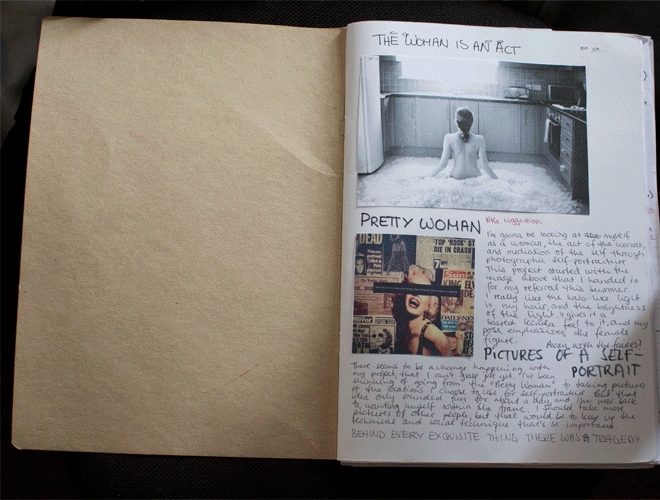 THE WOMAN IS AN ACT
PRETTY WOMAN
title suggestion
DEAD
TOP 'ROCK' ST
DIE IN CRASH
KING EL
DAILY NEWS
I'm gonna be looking at myself
as a woman, the act of the woman,
and mediation of the self through
photographic self-portraiture.
This project started with the
image above that I handed in
for my referral this summer.
I really like the halo-like light
in my hair, and the brightness
of the light, gives it a
sacred kinda feel to it, and my
pose emphasizes the female
figure.
Away with the fairies?
PICTURES OF A SELF-
PORTRAIT
There seems to be a change happening with
my project, that I can't grasp yet. I've been
thinking of going from the "Pretty Woman" to taking pictures
of the locations I choose to use for self-portraiture. But that
idea only sounded fun for about a day, and I'm now back
to wanting myself within the frame. I should take more
pictures of other people, but that would be to keep up the
technical and social technique that's so important.
BEHIND EVERY EXQUISITE THING THERE WAS A TRAGEDY